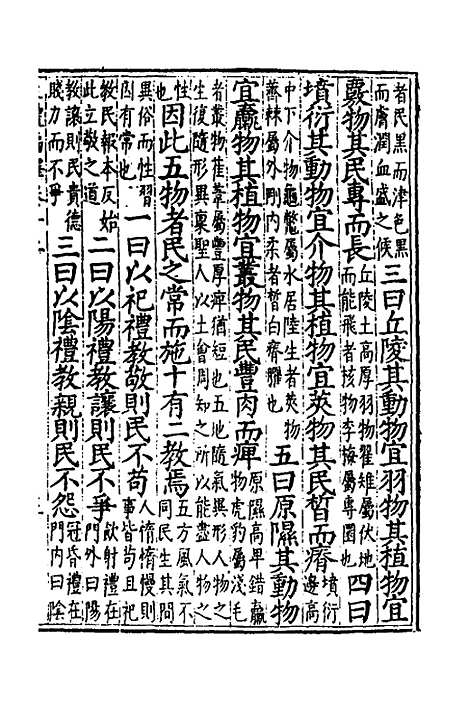 者民黑而津色黑
而膚潤血盛之候
三曰丘陵其動物宜羽物其植物宜
覈物其民專而長
丘陵土高厚羽物翟雉屬伏地
而能飛者核物李梅屬專圜也
四曰
墳衍其動物宜介物其植物宜莢物其民晳而瘠
墳衍
邊高
中下介物龜鼈屬水居陸生者莢物
薺棘屬外剛内柔者晳白瘠臞也
五曰原隰其動物
宜臝物其植物宜叢物其民豐肉而痺
原隰高卑錯臝
物虎豹屬淺毛
者叢物萑葦屬豐厚痺猶短也五地隨氣異形人物之
生復隨形異禀聖人以土會周知之所以能盡人物之
性
也
因此五物者民之常而施十有二教焉
五方風氣不
同民生其間
異俗而性習
因有常也
一曰以祀禮教敬則民不苟
人惰惰慢則
事皆苟且祀
教民報本反始
此立敬之道
二曰以陽禮教讓則民不爭
飲射禮在
門外曰陽
教讓則民貴德
賤力而不爭
三曰以陰禮教親則民不怨
冠昏禮在
門内曰陰